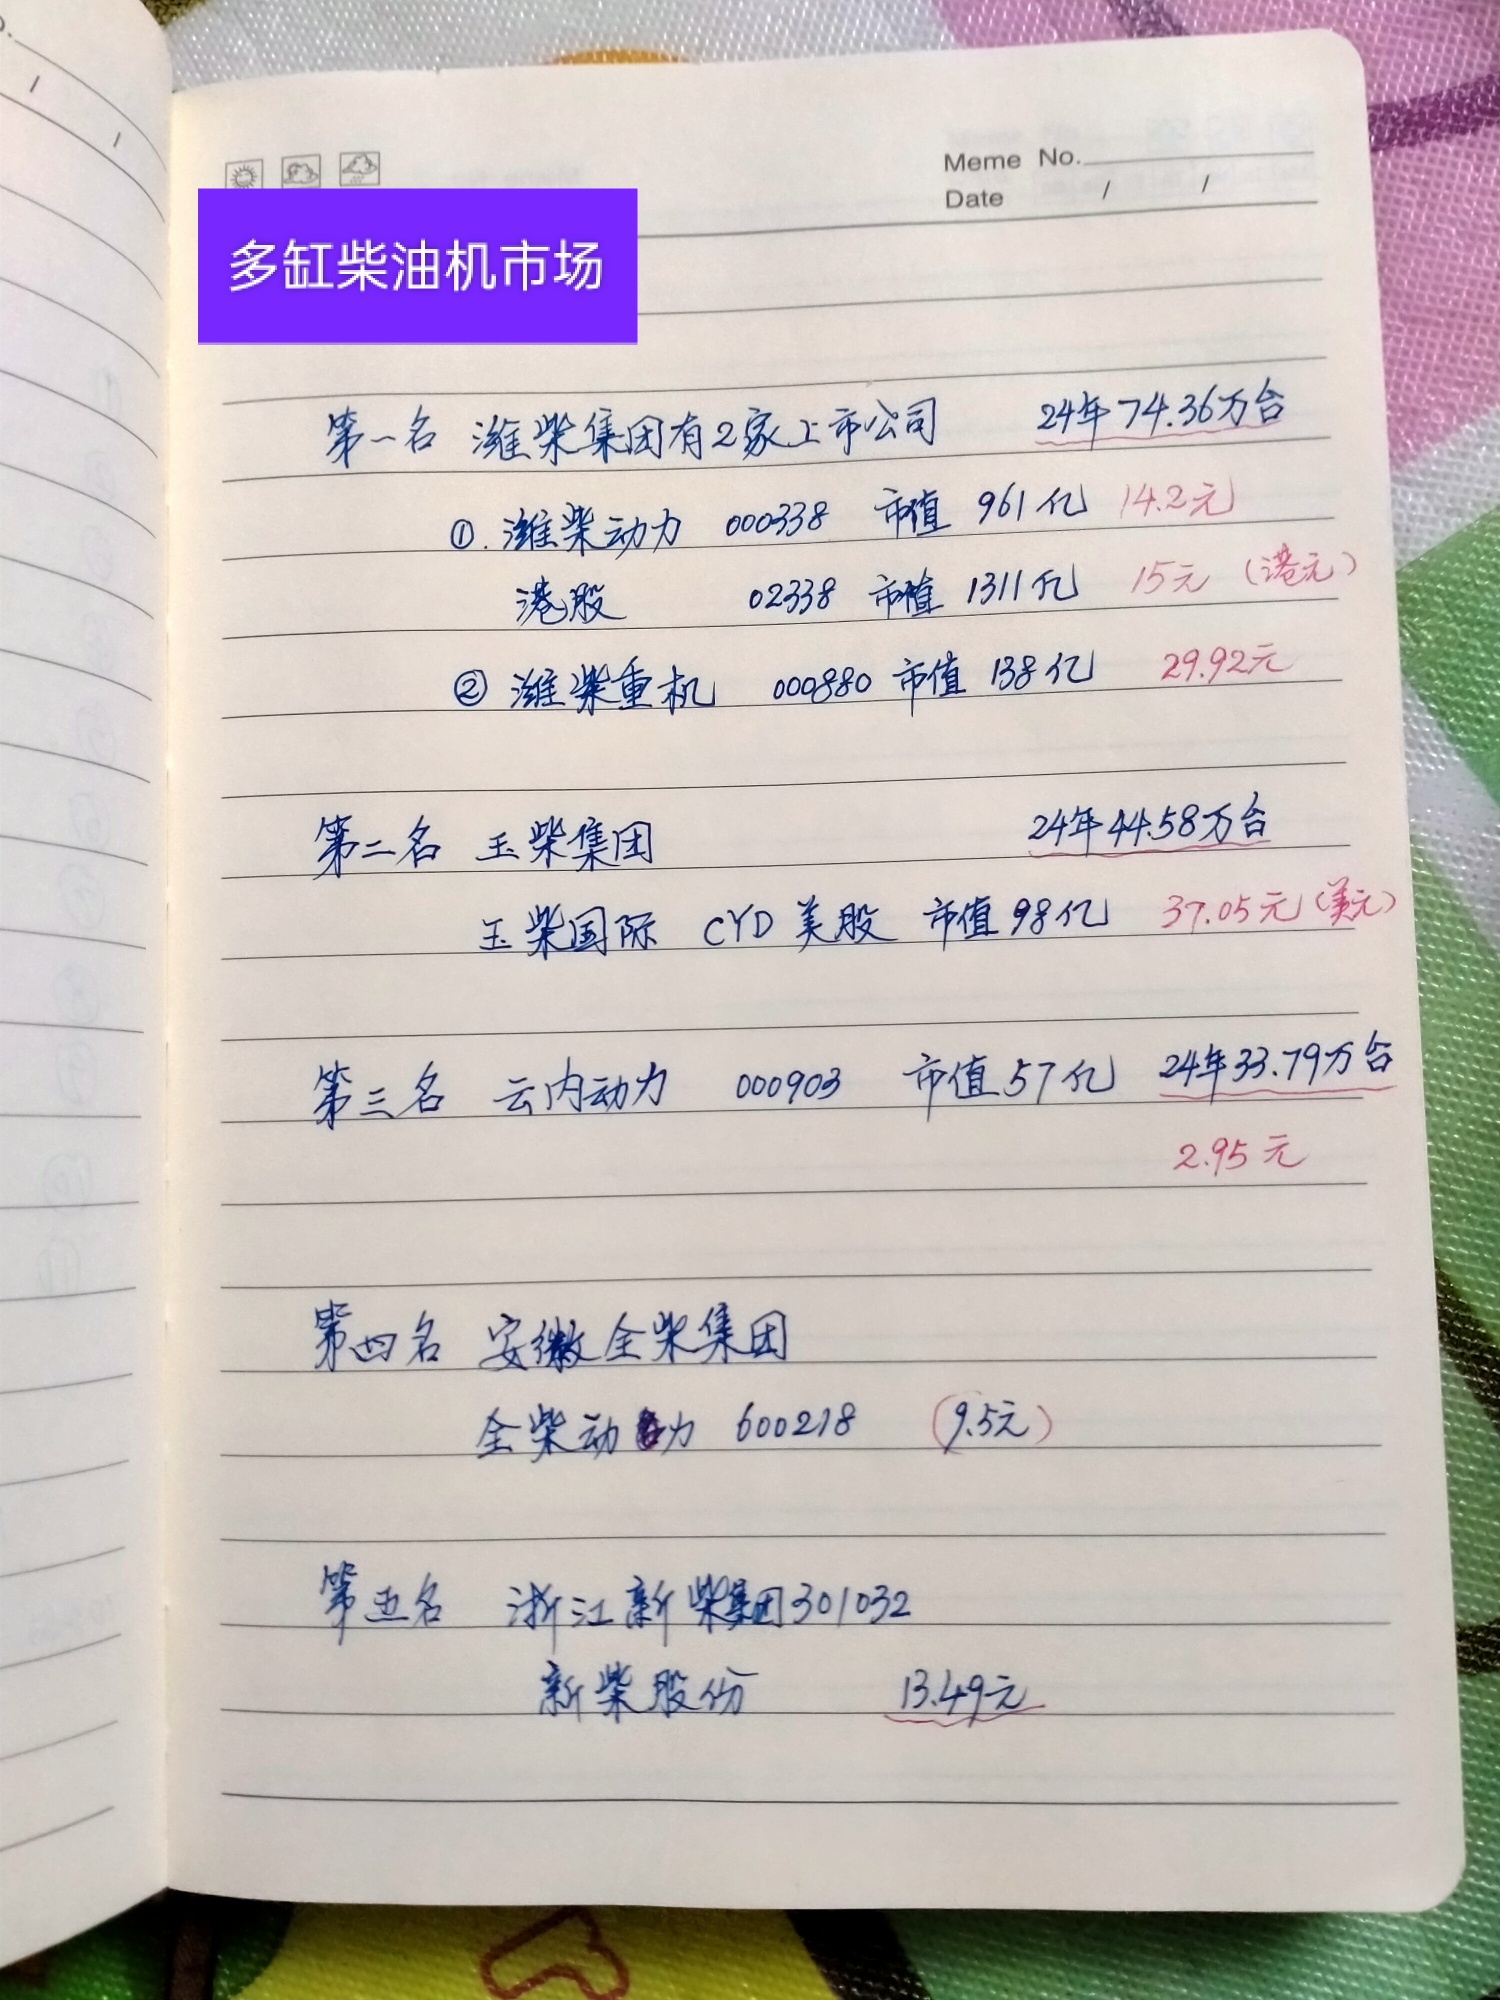 Meme No.
Date / /
多缸柴油机市场
第一名 潍柴集团有2家上市公司 24年74.36万台
①. 潍柴动力 000338 市值 961亿 14.2元
港股 02338 市值 1311亿 15元 (港元)
② 潍柴重机 000880 市值 138亿 29.92元
第二名 玉柴集团 24年44.58万台
玉柴国际 CYD 美股 市值98亿 37.05元 (美元)
第三名 云内动力 000903 市值57亿 24年33.79万台
2.95元
第四名 安徽全柴集团
全柴动力 600218 (9.5元)
第五名 浙江新柴集团301032
新柴股份 13.49元